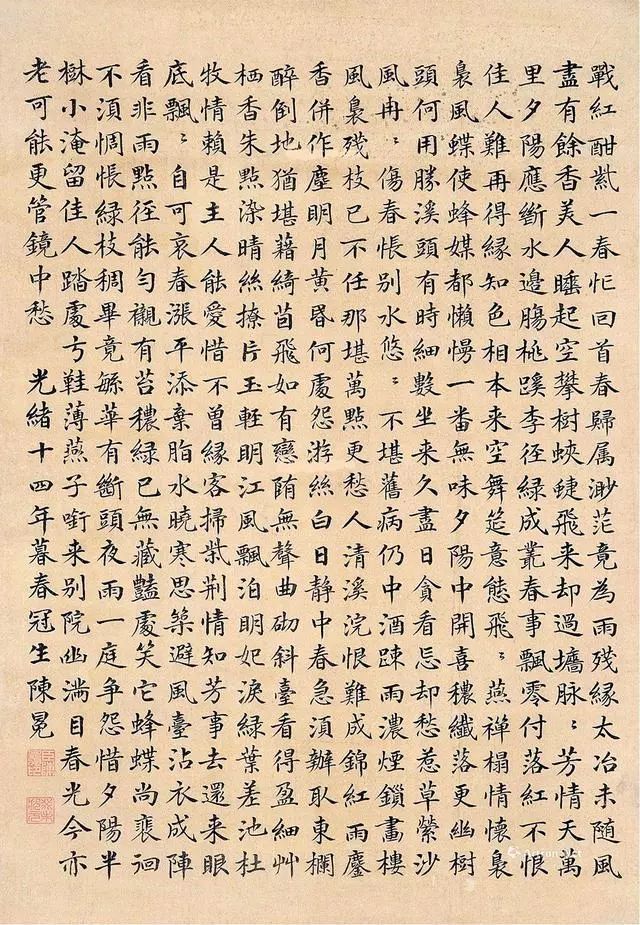 戰紅酣紫一春忙回首春歸属渺茫竟為雨殘緣太冶未随風
盡有餘香美人睡起空攀樹蛺蝶飛来却過墻脉〻芳情天萬
里夕陽應斷水邊腸桃蹊李徑綠成叢春事飄零付落紅不恨
佳人難再得緣知色相本来空舞筵意態飛〻燕禅榻情懷裊
裊風蝶使蜂媒都懶慢一番無味夕陽中開喜穠纖落更幽樹
頭何用勝溪頭有時細數坐来久盡日貪看忘却愁惹草縈沙
風冉〻傷春悵别水悠〻不堪舊病仍中酒踈雨濃煙鎖畫樓
風裊殘枝已不任那堪萬點更愁人清溪浣恨難成錦紅雨鏖
香併作塵明月黄昬何處怨游絲白日静中春急湏辦取東欄
醉倒地猶堪藉綺茵飛如有戀陏無聲曲砌斜臺看得盈細艸
栖香朱點染晴絲撩片玉輕明江風飄泊明妃淚綠葉差池杜
牧情賴是主人能愛惜不曾緣客掃柴荆情知芳事去還来眼
底飄〻自可哀春漲平添棄脂水曉寒思築避風臺沾衣成陣
看非雨點徑能勻襯有苔穠綠已無藏豔處笑它蜂蝶尚裵徊
不湏惆悵綠枝稠畢竟緐華有斷頭夜雨一庭争怨惜夕陽半
樹小淹留佳人踏處弓鞋薄燕子銜来别院幽滿目春光今亦
老可能更管鏡中愁 光緒十四年暮春冠生陳冕